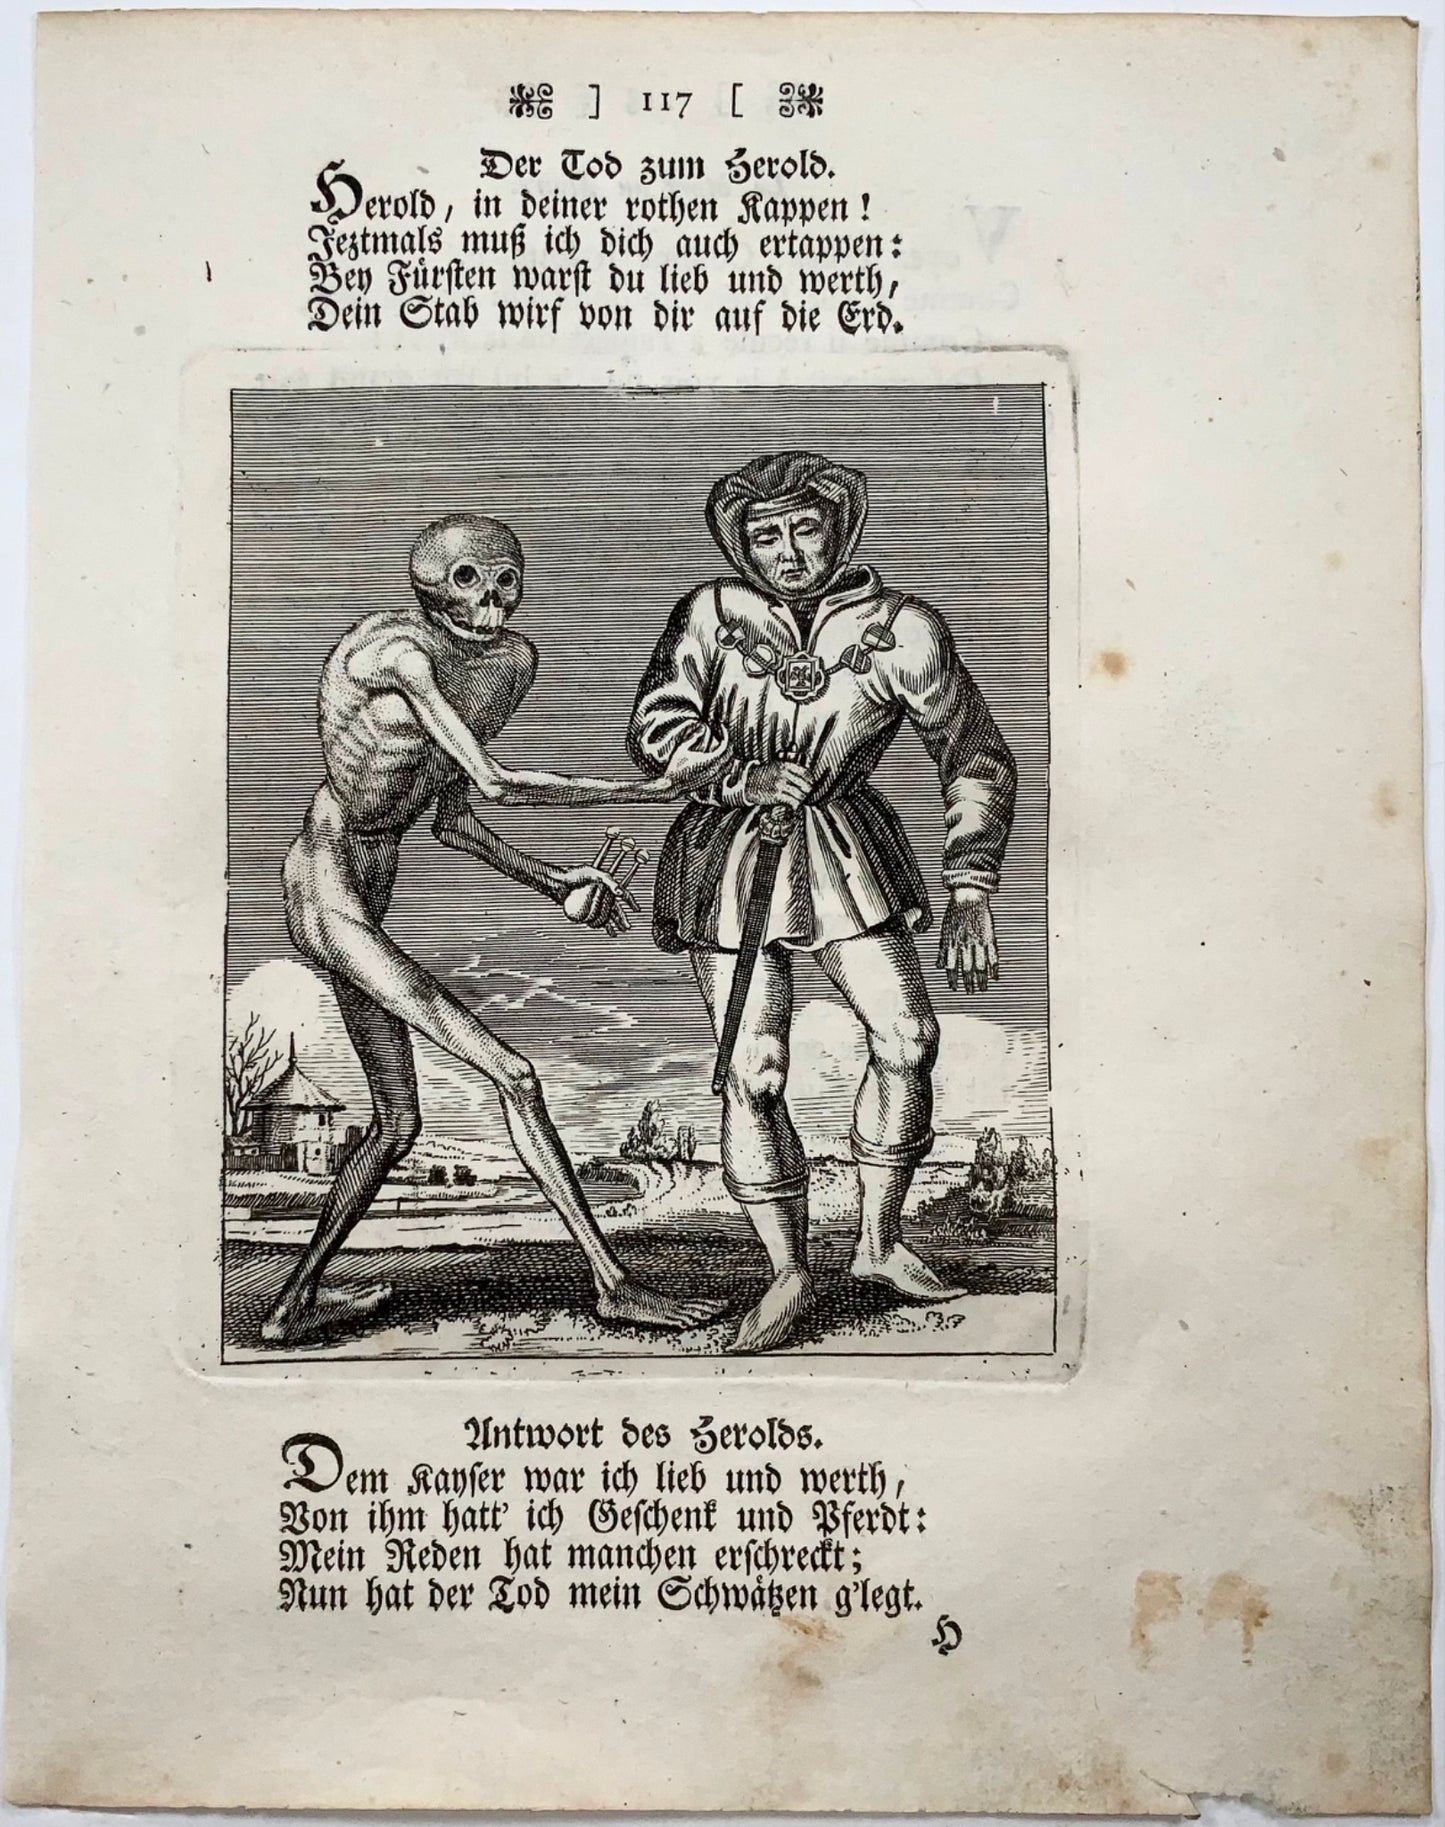 ] 117 [
Der Tod zum Herold.
Herold, in deiner rothen Kappen!
Jeztmals muß ich dich auch ertappen:
Bey Fürsten warst du lieb und werth,
Dein Stab wirf von dir auf die Erd.
Antwort des Herolds.
Dem Kayser war ich lieb und werth,
Von ihm hatt' ich Geschenk und Pferdt:
Mein Reden hat manchen erschreckt;
Nun hat der Tod mein Schwätzen g'legt.
H